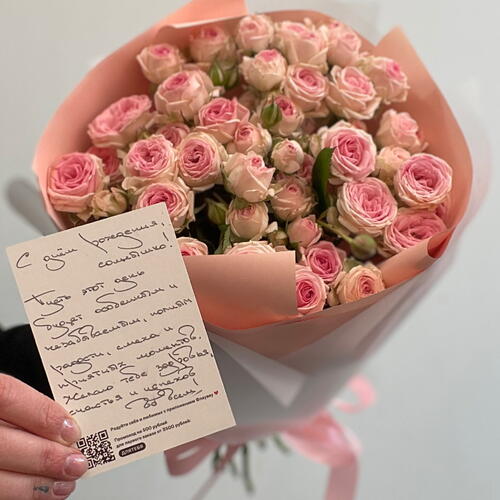 С днём рождения,
солнышко!
Пусть этот день
будет особенным и
незабываемым, полным
радости, смеха и
приятных моментов.
Желаю тебе здоровья,
счастья и успехов
во всём!
Радуйте себя и любимых с приложением Флаувау ❤
Промокод на 500 рублей
для первого заказа от 3500 рублей:
ДЛЯТЕБЯ